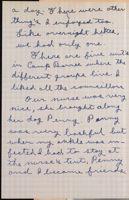 a day. There were other
things I enjoyed too.
Like overnight hikes,
we had only one.
There are five units
in Camp Barree where the
different groups live. I
liked all the councillors.
Our nurse was very
nice, she brought along
her dog Penny. Penny
was very bashful but
when my ankle was in-
fected I had to stay at
the nurse's tent, Penny
and I became friends.